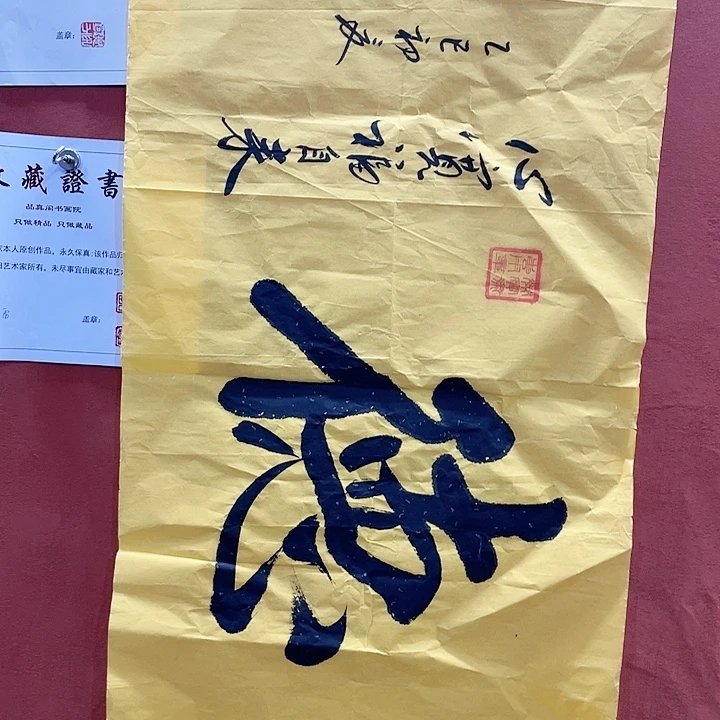 德
心宽福自来
乙巳初夏
盖章：
藏證書
品真阁书画院
只做精品 只做藏品
本人原创作品，永久保真;该作品
艺术家所有，未尽事宜由藏家和艺
盖章：